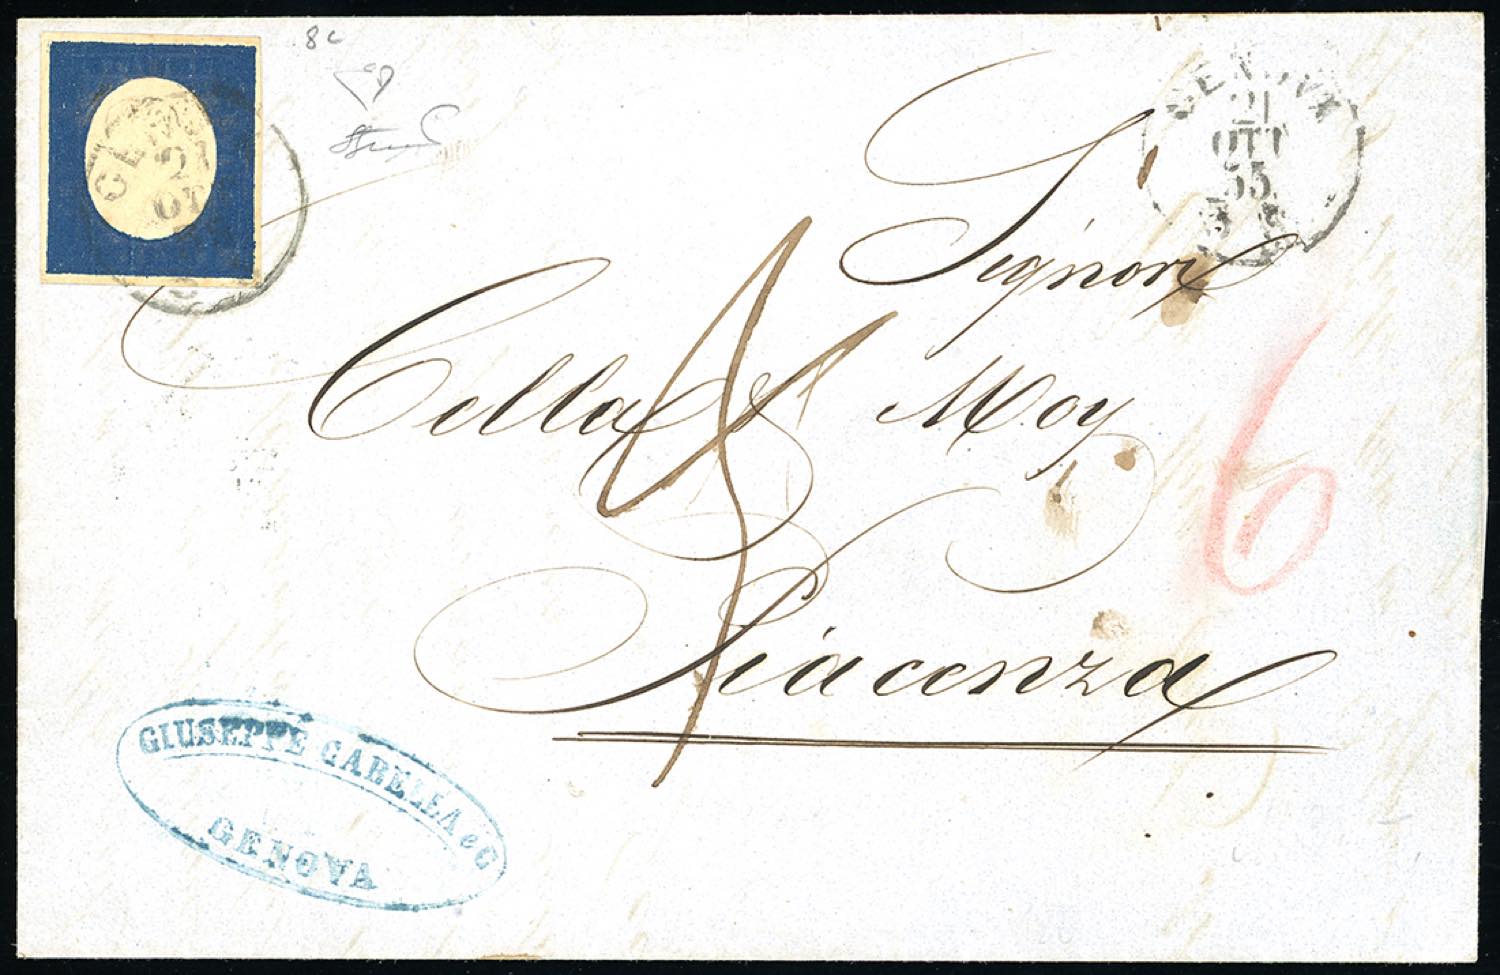 8c
GENOVA
21
OTT
55
GEN
2
OT
Signori
Cella & Moy
Piacenza
6
GIUSEPPE GABELLA e C
GENOVA